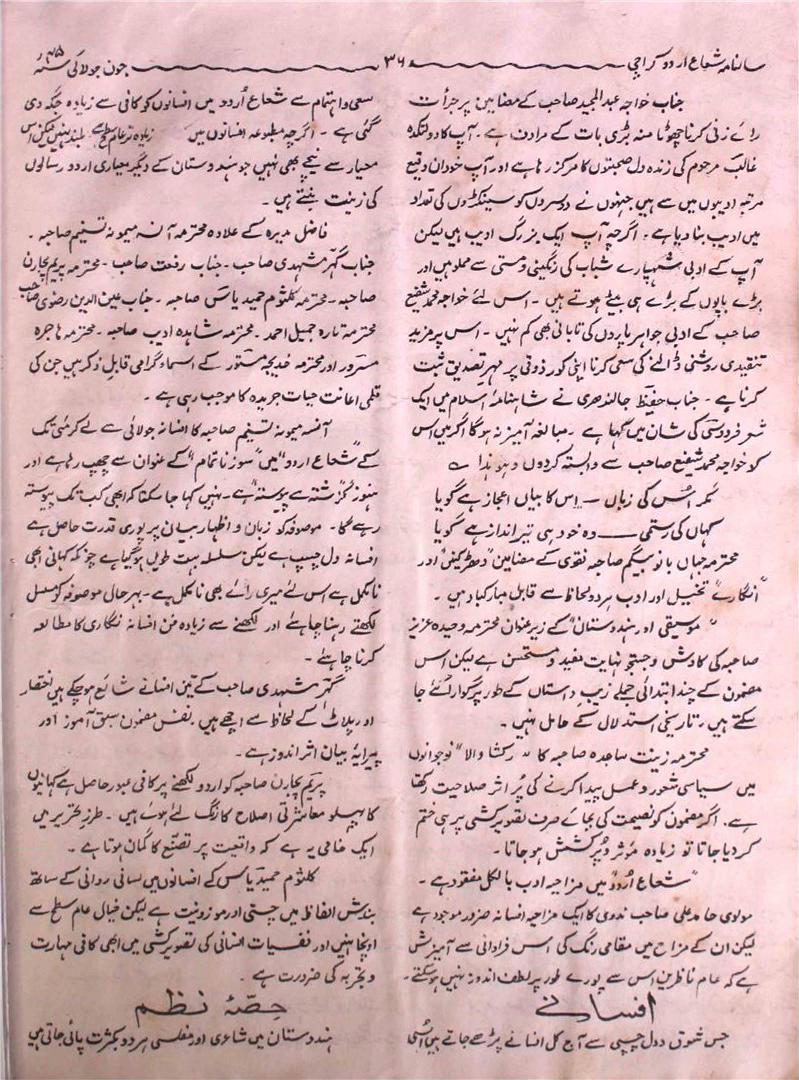 سالنامہ شعاع اردو کراچی ۳۶ جون جولائی
جناب خواجہ عبدالمجید صاحب کے مضامین پر جرأت
رائے زنی کرنا چھوٹا منہ بڑی بات کے مرادف ہے۔ آپ کا دولتکدہ
غالب مرحوم کی زندہ دل صحبتوں کا مرکز رہا ہے اور آپ خود ان وقیع
مرتبہ ادیبوں میں سے ہیں جنہوں نے دوسروں کو سینکڑوں کی تعداد
میں ادیب بنا دیا ہے۔ اگرچہ آپ ایک بزرگ ادیب ہیں لیکن
آپ کے ادبی شہپارے شباب کی رنگینی و مستی سے مملو ہیں اور
بڑے باپوں کے بڑے ہی بیٹے ہوتے ہیں۔ اس لئے خواجہ محمد شفیع
صاحب کے ادبی جواہر پاروں کی تابانی بھی کم نہیں۔ اس پر مزید
تنقیدی روشنی ڈالنے کی سعی کرنا اپنی کور ذوقی پر مہر تصدیق ثبت
کرنا ہے۔ جناب حفیظ جالندھری نے شاہنامۂ اسلام میں ایک
شعر فردوسی کی شان میں کہا ہے۔ مبالغہ آمیز نہ ہوگا اگر میں اس
کو خواجہ محمد شفیع صاحب سے وابستہ کردوں وہو ہذا ے
مگر اُس کی زباں — اِس کا بیاں اعجاز ہے گویا
کہاں کی رستمی — وہ خود ہی تیر انداز ہے گویا
محترمہ جہاں بانو بیگم صاحبہ نقوی کے مضامین "دھڑکنیں" اور
"انگارے" تخیل اور ادب ہر دو لحاظ سے قابل مبارکباد ہیں۔
"موسیقی اور ہندوستان" کے زیر عنوان محترمہ وحیدہ عزیز
صاحبہ کی کاوش و جستجو نہایت مفید و مستحسن ہے لیکن اس
مضمون کے چند ابتدائی جملے زیب داستاں کے طور پر گوارا کئے جا
سکتے ہیں۔ تاریخی استدلال کے حامل نہیں۔
محترمہ زینت ساجدہ صاحبہ کا "رکشا والا" نوجوانوں
میں سیاسی شعور و عمل پیدا کرنے کی پُر اثر صلاحیت رکھتا
ہے۔ اگر مضمون کو نصیحت کی بجائے صرف تصویر کشی پر ہی ختم
کردیا جاتا تو زیادہ مؤثر و پُرکشش ہو جاتا۔
"شعاع اُردو" میں مزاحیہ ادب بالکل مفقود ہے۔
مولوی حامد علی صاحب ندوی کا ایک مزاحیہ افسانہ ضرور موجود ہے
لیکن ان کے مزاح میں مقامی رنگ کی اس فراوانی سے آمیزش
ہے کہ عام ناظرین اس سے پورے طور پر لطف اندوز نہیں ہو سکتے۔
افسانے
جس شوق و دل چسپی سے آج کل افسانے پڑھے جاتے ہیں اُسی
سعی و اہتمام سے شعاع اُردو میں افسانوں کو کافی سے زیادہ جگہ دی
گئی ہے۔ اگرچہ مطبوعہ افسانوں میں زیادہ تر عام سطح سے بلند نہیں لیکن اس
معیار سے نیچے بھی نہیں جو ہندوستان کے دیگر معیاری اردو رسالوں
کی زینت بنتے ہیں۔
فاضل مدیرہ کے علاوہ محترمہ آنسہ میمونہ تسنیم صاحبہ۔
جناب گہر مشہدی صاحب۔ جناب رفعت صاحب۔ محترمہ پریم پجارن
صاحبہ۔ محترمہ کلثوم حمید یاس صاحبہ۔ جناب عین الدین رضوی صاحب
محترمہ تارہ جمیل احمد۔ محترمہ شاہدہ ادیب صاحبہ۔ محترمہ ہاجرہ
مسرور اور محترمہ خدیجہ مستور کے اسماء گرامی قابل ذکر ہیں جن کی
قلمی اعانت حیات جریدہ کا موجب رہی ہے۔
آنسہ میمونہ تسنیم صاحبہ کا افسانہ جولائی سے لے کر مئی تک
کے "شعاع اردو" میں "سوز ناتمام" کے عنوان سے چھپ رہا ہے اور
ہنوز "گزشتہ سے پیوستہ" ہے۔ نہیں کہا جا سکتا کہ ابھی کب تک پیوستہ
رہے گا۔ موصوفہ کو زبان و اظہار بیان پر پوری قدرت حاصل ہے
افسانہ دل چسپ ہے لیکن سلسلہ بہت طویل ہوگیا ہے چونکہ کہانی ابھی
نامکمل ہے اس لئے میری رائے بھی نامکمل ہے۔ بہرحال موصوفہ کو مسلسل
لکھتے رہنا چاہئے اور لکھنے سے زیادہ فن افسانہ نگاری کا مطالعہ
کرنا چاہئے۔
گہر مشہدی صاحب کے تین افسانے شایع ہوچکے ہیں اختصار
اور پلاٹ کے لحاظ سے اچھے ہیں۔ نفس مضمون سبق آموز اور
پیرایۂ بیان اثر انداز ہے۔
پریم پجارن صاحبہ کو اردو لکھنے پر کافی عبور حاصل ہے کہانیوں
کا پہلو معاشرتی اصلاح کا رنگ لئے ہوئے ہیں۔ طرز تحریر میں
ایک خامی یہ ہے کہ واقعیت پر تصنّع کا گمان ہوتا ہے۔
کلثوم حمید یاس کے افسانوں میں لسانی روانی کے ساتھ
بندش الفاظ میں چستی اور موزونیت ہے لیکن خیال عام سطح سے
اونچا نہیں اور نفسیات انسانی کی تصویر کشی میں ابھی کافی مہارت
و تجربہ کی ضرورت ہے۔
حصّۂ نظم
ہندوستان میں شاعری اور مفلسی ہر دو بکثرت پائی جاتی ہیں